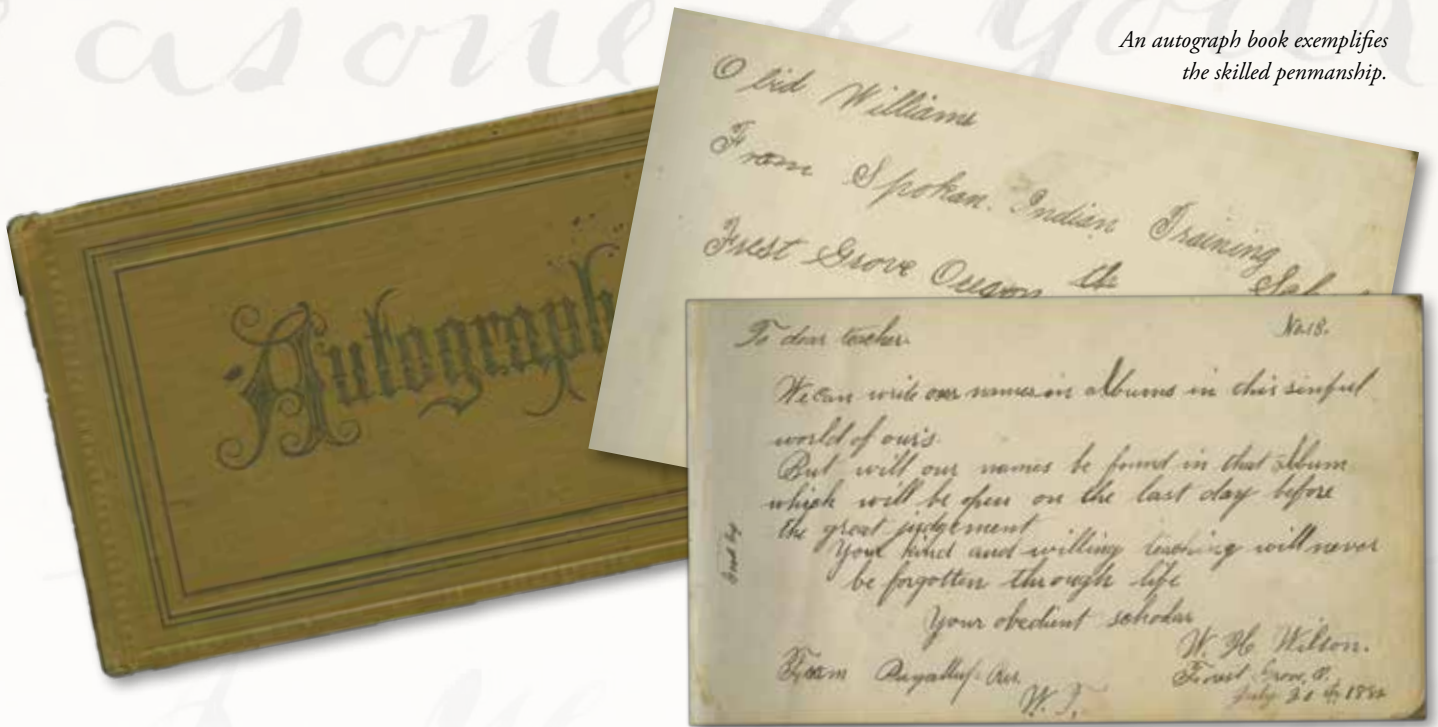 as one of your
An autograph book exemplifies
the skilled penmanship.
Autograph
Obid Williams
From Spokan. Indian Training
Frest Grove Oregon the
To dear teacher.
No. 18.
We can write our names in albums in this sinful
world of our's
But will our names be found in that album
which will be open on the last day before
the great judgement
Your kind and willing teaching will never
be forgotten through life
Your obedient scholar
W. H. Wilson.
From Puyallup Res.
W. T.
Forest Grove, O.
July
Good by